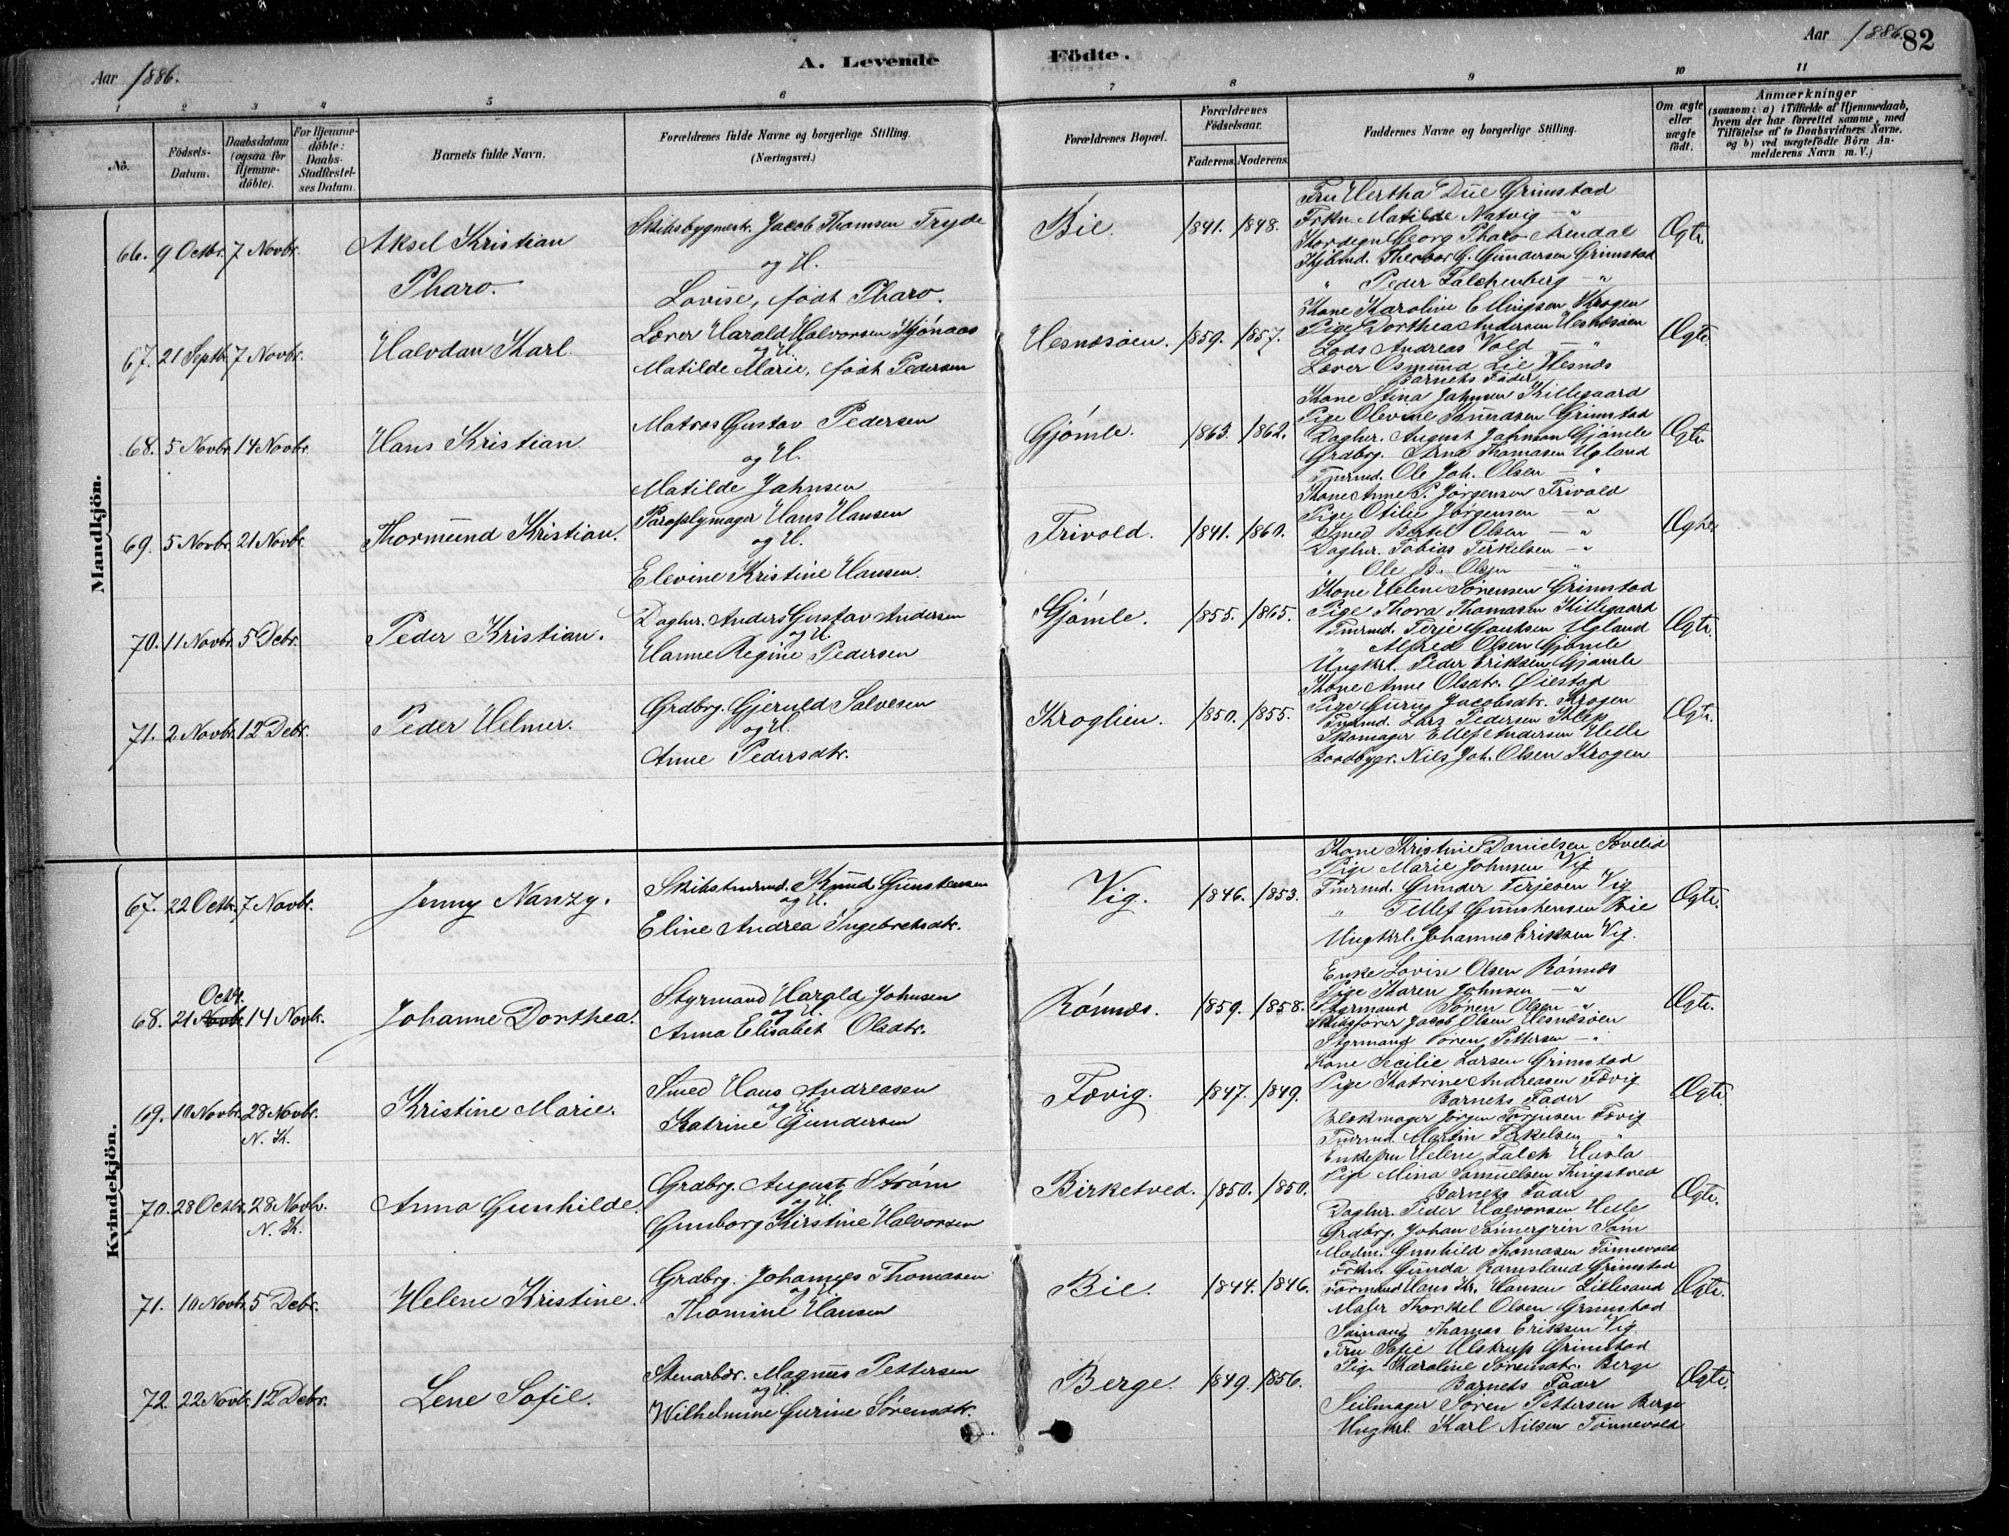 Aar 1886.
A. Levende
Födte.
Aar 1886.
82
1 2 3 4 5 6 7 8 9 10 11
No.
Födsels-Datum.
Daabsdatum (ogsaa for Hjemmedöbte).
For Hjemmedöbte: Daabs-Stadfæstelses Datum.
Barnets fulde Navn.
Forældrenes fulde Navne og borgerlige Stilling.
(Næringsvei.)
Forældrenes Bopæl.
Forældrenes Födselsaar.
Faderens. Moderens.
Faddernes Navne og borgerlige Stilling.
Om ægte eller uægte födt.
Anmærkninger
(saasom: a) i Tilfælde af Hjemmedaab, hvem der har forrettet samme, med Tilföielse af to Daabsvidners Navne, og b) ved uægtefödte Börn Anmelderens Navn m. V.)
Mandkjön.
66. 9 Octbr. 7 Novbr. Aksel Kristian Pharo.
Skibsbygmestr. Jacob Thomsen Tryde
og H.
Lovise, født Pharo.
Bie. 1841. 1848.
Fru Hertha Due Grimstad
Frkn. Matilde Natvig — "
Kordegn Georg Pharo Arendal
Kjøbmd. Therbor G. Gundersen Grimstad
" Peder Falchenberg — "
Ægte.
67. 21 Septb. 7 Novbr. Halvdan Karl.
Lærer Harald Halvorsen Kjønaas
og H.
Matilde Marie, født Pedersen
Hesnæsøen. 1859. 1857.
Kone Karoline Ellingsen Krogen
Pige Dorthea Andersen Hesnæsøen
Lods Andreas Vold — "
Lærer Osmund Lie Hesnæs
Barnets Fader
Ægte.
68. 5 Novbr. 14 Novbr. Hans Kristian.
Matros Gustav Pedersen
og H.
Matilde Jahnsen
Gjømle. 1863. 1862.
Kone Stina Jahnsen Killegaard
Pige Olevine Knudsen Grimstad
Daglnr. August Jahnsen Gjømle
Grdbrg. Arne Thomasen Ugland
Tmrmd. Ole Joh. Olsen — "
Ægte.
69. 5 Novbr. 21 Novbr. Thormund Kristian.
Paraplymager Hans Hansen
og H.
Elevine Kristine Hansen.
Frivold. 1841. 1860.
Kone Anne P. Jørgensen Frivold
Pige Otilie Jørgensen — "
Smed Bertel Olsen — "
Daglnr. Tobias Terkelsen — "
" Ole B. Olsen — "
Ægte.
70. 11 Novbr. 5 Decbr. Peder Kristian.
Daglnr. Anders Gustav Andersen
og H.
Hanne Regine Pedersen
Gjømle. 1855. 1865.
Kone Helene Sørensen Grimstad
Pige Thora Thomasen Killegaard
Tmrmd. Terje Gautsen Ugland
" Alfred Olsen Gjømle
Ungkrl. Peder Eriksen Gjømle
Ægte.
71. 2 Novbr. 12 Debr. Peder Helmer.
Grdbrg. Gjeruld Salvesen
og H.
Anne Pedersdtr.
Kroglien. 1850. 1855.
Kone Anne Olsdtr. Øiestad
Pige Gurug Jacobsdtr. Krogen
Tmrmd. Lars Pedersen Klep
Skomager Ellef Andersen Helle
Baadbygr. Nils Joh. Olsen Krogen
Ægte.
Kvindekjön.
67. 22 Octb. 7 Novbr. Jenny Nanzy.
Skibstmrmd. Knud Gunstensen
og H.
Eline Andrea Ingebretsdtr.
Vig. 1846. 1853.
Kone Kristine Danielsen
Pige Marie Johnsen Vig
Tmrmd. Gunder Terjesen Vig
" Tellef Gunstensen Bie
Ungkrl. Johannes Eriksen Vig.
Ægte.
68. 21 Octbr. 14 Novbr. Johanne Dorthea.
Styrmand Harald Johnsen
og H.
Anna Elisabet Olsdtr.
Rønnæs. 1859. 1858.
Enke Lovise Olsen Rønnæs
Pige Karen Johnsen — "
Styrmand Søren Olsen — "
Skibsfører Jacob Olsen Hesnæsøen
Styrmand Søren Pettersen — "
Ægte.
69. 10 Novbr. 28 Novbr. N. K. Kristine Marie.
Smed Hans Andreasen
og H.
Katrine Gundersen
Fævig. 1847. 1849.
Kone Secilie Larsen Grimstad
Pige Katrine Andreasen Fævig
Barnets Fader
Blokmager Jørgen Torjusen Fævig
Tmrmd. Martin Terkelsen "
Ægte.
70. 28 Octbr. 28 Novbr. N. K. Anna Gunhilde.
Grdbrg. August Strøm
og H.
Gunborg Kirstine Halvorsen
Birketved. 1850. 1850.
Enkefru Helene Falch Hasla
Pige Mina Samuelsen Ringstved
Barnets Fader
Daglnr. Peder Halvorsen Helle
Grdbrg. Johan Sønnergrin Søm
Ægte.
71. 10 Novbr. 5 Debr. Helene Kristine.
Grdbrg. Johannes Thomasen
og H.
Thomine Hansen
Bie. 1844. 1846.
Madm. Gunhild Thomasen Tønnevold
Frkn. Gunda Ramsland Grimstad
Formand Hans Kr. Hansen Lillesand
Maler Thorkel Olsen Grimstad
Sømand Thomas Eriksen Vig
Ægte.
72. 22 Novbr. 12 Debr. Lene Sofie.
Stenarbdr. Magnus Pettersen
og H.
Wilhelmine Gurine Sørensdtr.
Berge. 1849. 1856.
Fru Sofie Ulstrup Grimstad
Pige Karoline Sørensdtr. Berge
Barnets Fader
Seilmager Søren Pettersen Berge
Ungkrl. Karl Nilsen Tønnevold
Ægte.